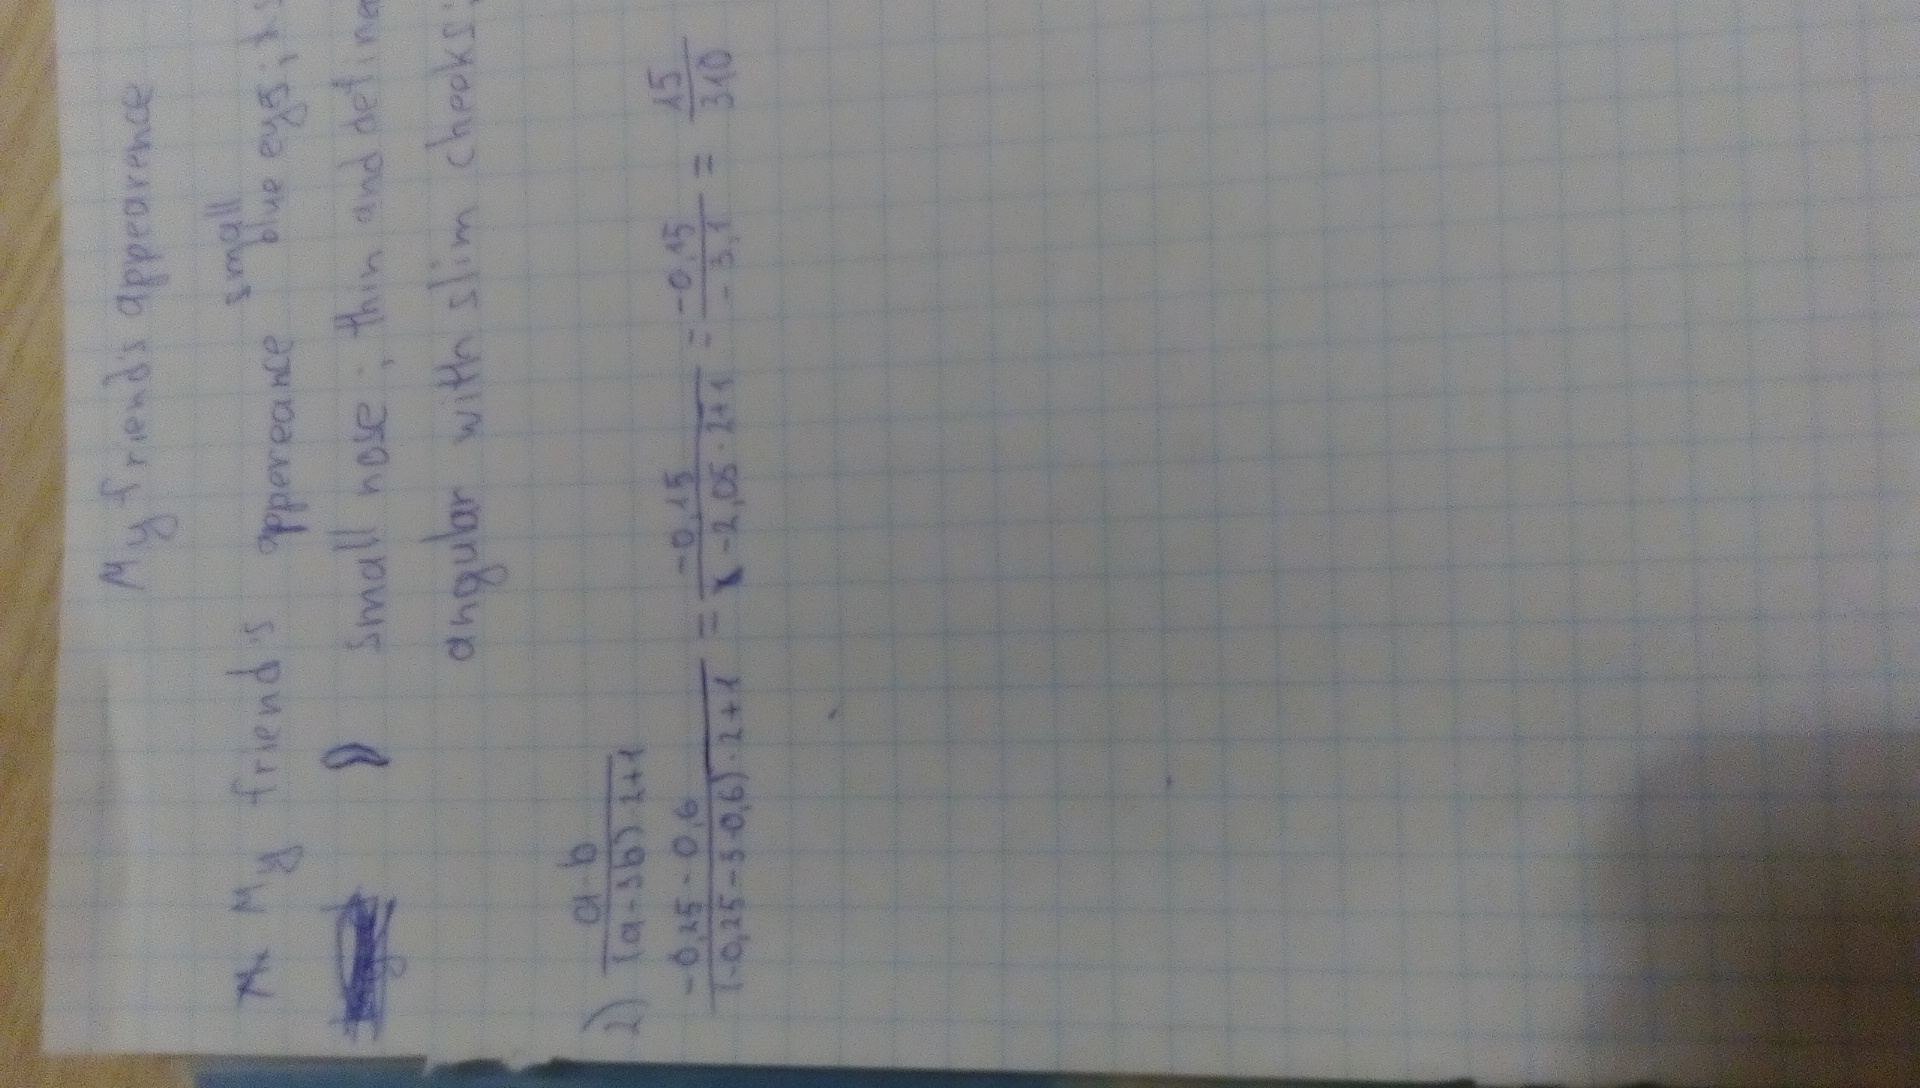 My friend's appearence
My friend's appereance small blue eyes;
small nose; thin and define
angular with slim cheeks;
2) a-b / (a-3b)·2+1
-0,25-0,6 / (-0,25-3·0,6)·2+1 = -0,15 / -2,05·2+1 = -0,15 / -3,1 = 15 / 310